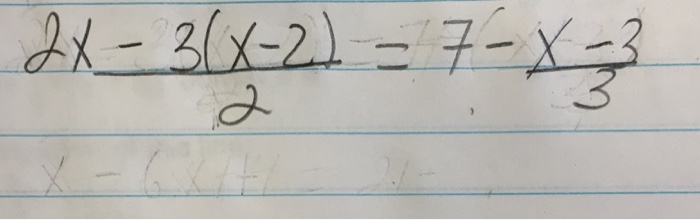 2x - 3(x-2) = 7 - x - 3
2 3